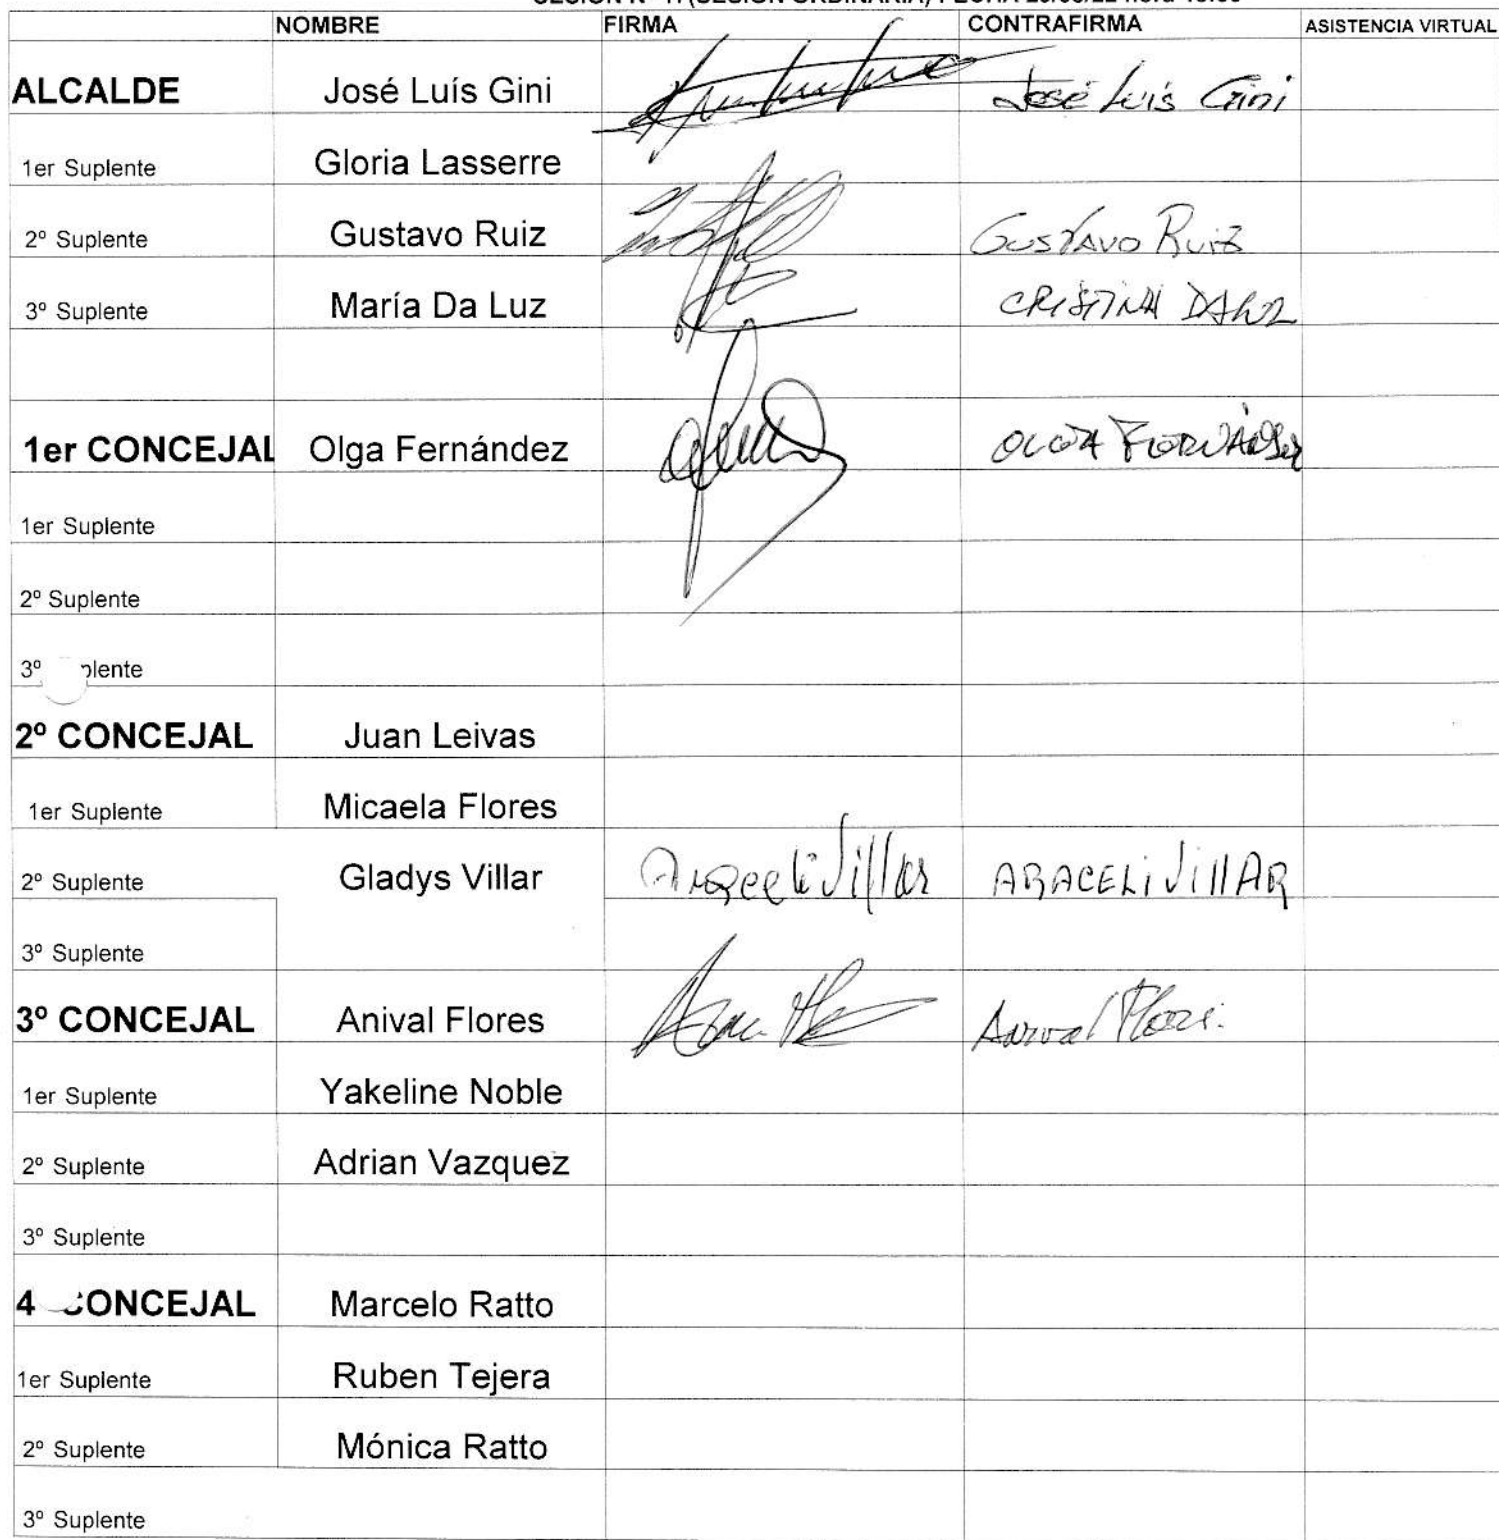 NOMBRE FIRMA CONTRAFIRMA ASISTENCIA VIRTUAL
ALCALDE José Luís Gini José Luis Gini
1er Suplente Gloria Lasserre
2º Suplente Gustavo Ruiz Gustavo Ruiz
3º Suplente María Da Luz CRISTINA DALUZ
1er CONCEJAL Olga Fernández OLGA FERNÁNDEZ
1er Suplente
2º Suplente
3º plente
2º CONCEJAL Juan Leivas
1er Suplente Micaela Flores
2º Suplente Gladys Villar Araceli Villar ARACELi VillAR
3º Suplente
3º CONCEJAL Anival Flores Anival Flores.
1er Suplente Yakeline Noble
2º Suplente Adrian Vazquez
3º Suplente
4 CONCEJAL Marcelo Ratto
1er Suplente Ruben Tejera
2º Suplente Mónica Ratto
3º Suplente